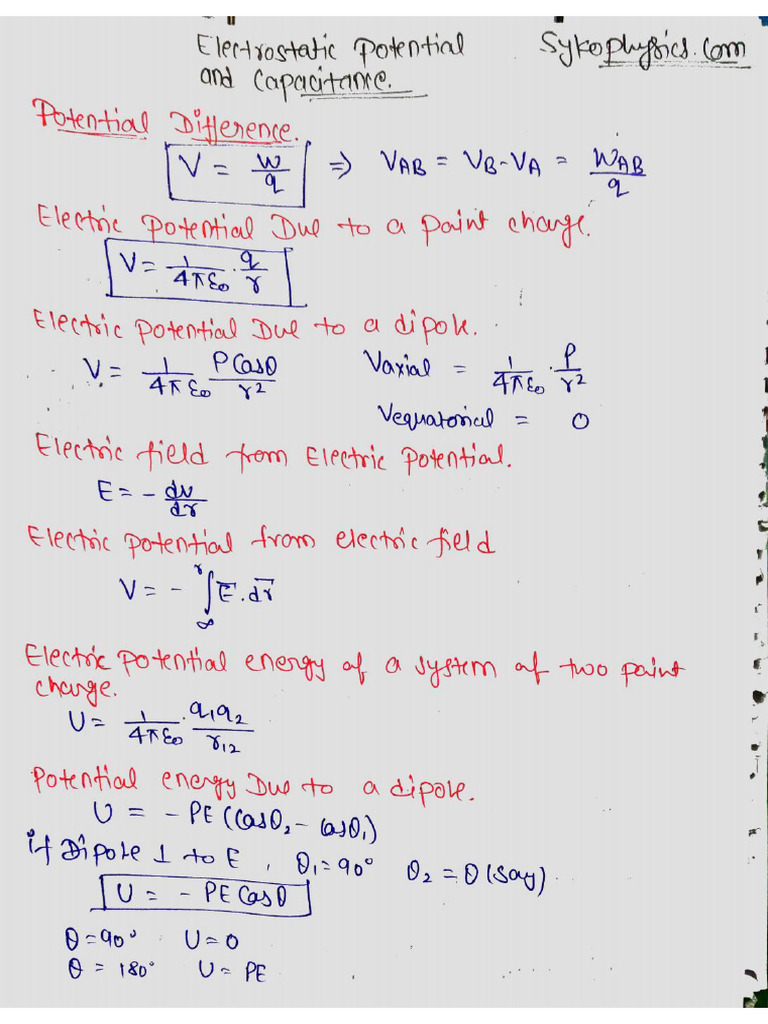 Electrostatic Potential Sykophysics.com
and Capacitance.
Potential Difference.
V = W/q ⇒ VAB = VB-VA = WAB/q
Electric Potential Due to a point charge.
V = 1/4πε0 · q/r
Electric Potential Due to a dipole.
V = 1/4πε0 PCosθ/r² Vaxial = 1/4πε0 · P/r²
Vequatorial = 0
Electric field from Electric Potential.
E = - dv/dr
Electric potential from electric field
V = - ∫∞^r E̅.dr̅
Electric potential energy of a system of two point
charge.
U = 1/4πε0 · q1q2/r12
Potential energy Due to a dipole.
U = - PE (Cosθ2 - Cosθ1)
if Dipole ⊥ to E , θ1 = 90° θ2 = θ (say)
U = - PE Cosθ
θ = 90° U = 0
θ = 180° U = PE